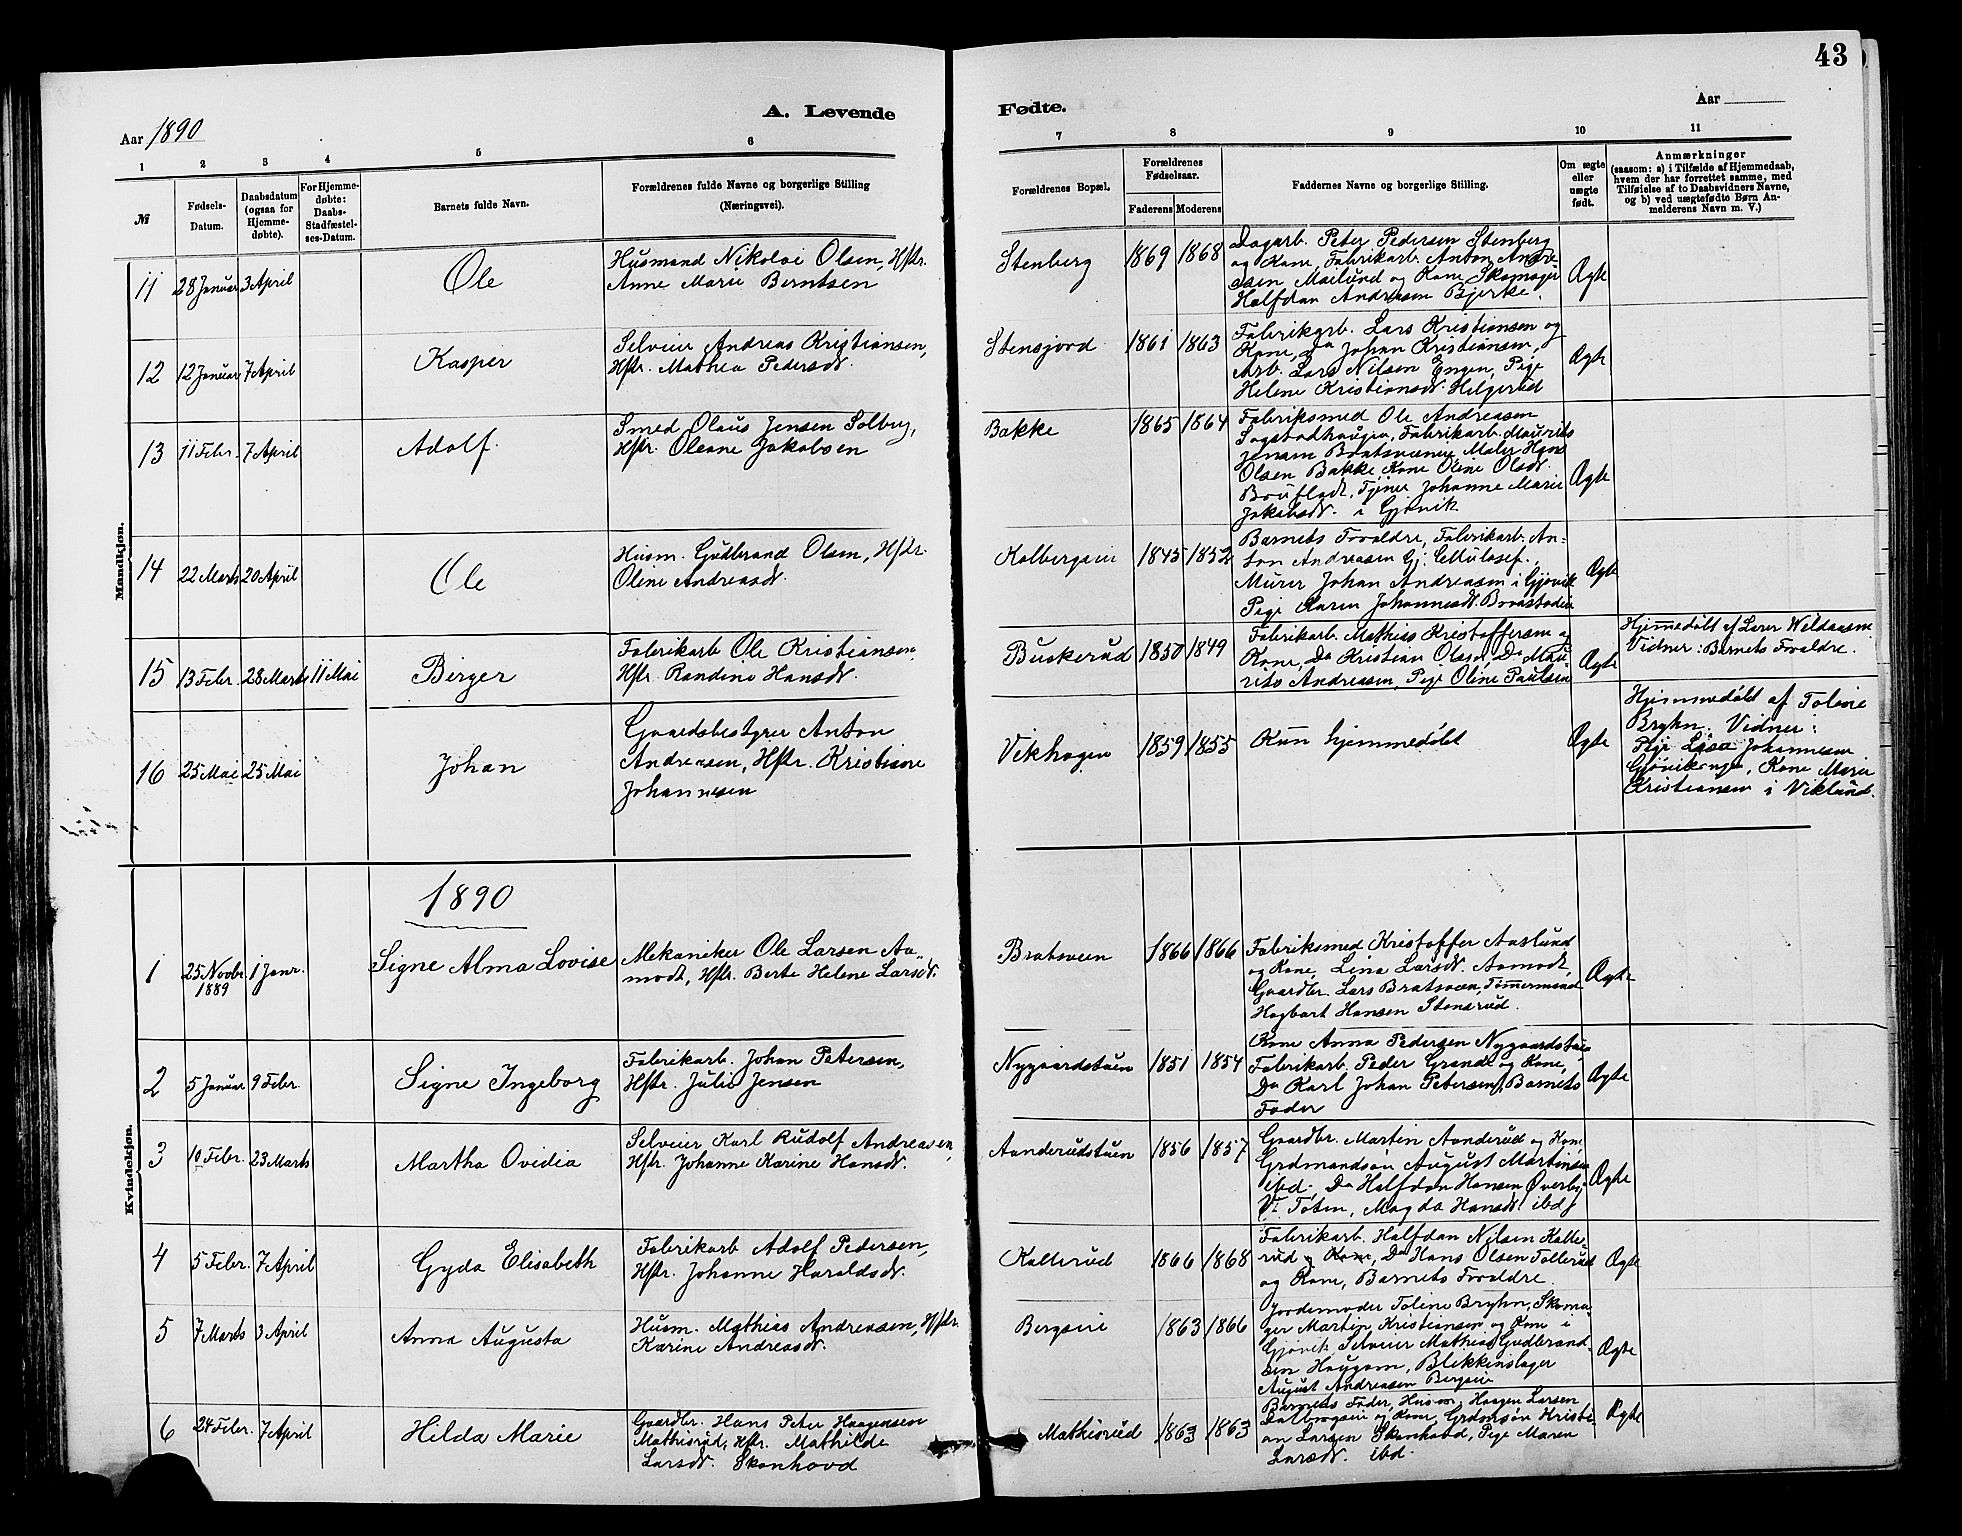 43
A. Levende
Fødte.
Aar 1890
Aar
1 2 3 4 5 6
7 8 9 10 11
№
Fødsels-
Datum.
Daabsdatum
(ogsaa for
Hjemme-
døbte).
For Hjemme-
døbte:
Daabs-
Stadfæstel-
ses-Datum.
Barnets fulde Navn.
Forældrenes fulde Navne og borgerlige Stilling
(Næringsvei).
Forældrenes Bopæl.
Forældrenes
Fødselsaar.
Faderens Moderens
Faddernes Navne og borgerlige Stilling.
Om ægte
eller
uægte
født.
Anmærkninger
(saasom: a) i Tilfælde af Hjemmedaab,
hvem der har forrettet samme, med
Tilføielse af to Daabsvidners Navne,
og b) ved uægtefødte Børn An-
melderens Navn m. V.)
Mandkjøn.
11 28 Januar 3 April
Ole
Husmand Nikolai Olsen, Hstr.
Anne Marie Berntsen
Stenberg 1869 1868
Dagarb. Peter Pedersen Stenberg
og Kone, Fabrikarb. Anton Andre-
asen Mailund og Kone, Skomager
Halfdan Andreasen Bjerke.
Ægte
12 12 Januar 7 April
Kasper
Selveier Andreas Kristiansen,
Hstr. Mathea Pedersdt.
Stensjord 1861 1863
Fabrikarb. Lars Kristiansen og
Kone, Do Johan Kristiansen,
Arb. Lars Nilsen Engen, Pige
Helene Kristiansdt. Helgerud
Ægte
13 11 Febr. 7 April
Adolf
Smed Olaus Jensen Solberg,
Hstr. Oleane Jakobsen
Bakke 1865 1864
Fabriksmed Ole Andreasen
Sogstadhaugen, Fabrikarb. Maurits
Jensen Bratsveen, Maler Hans
Olsen Bakke Kone Oline Olsdt.
Tjener Johanne Marie
Jakobsdt. i Gjøvik
Ægte
14 22 Marts 20 April
Ole
Husm. Gudbrand Olsen, Hstr.
Oline Andreasdt.
Kolbergseie 1845 1852
Barnets Forældre, Fabrikarb. An-
ton Andreasen Gj. Cellulosef.,
Murer Johan Andreasen i Gjøvik
Pige Karen Johannesdt. Braastaden
Ægte
15 13 Febr. 28 Marts 11 Mai
Birger
Fabrikarb Ole Kristiansen
Hstr. Randine Hansdt.
Buskerud 1850 1849
Fabrikarb. Mathias Kristoffersen og
Kone, Do Kristian Olsen, Do Mau-
rits Andreasen, Pige Oline Paulsen
Ægte
Hjemmedøbt af Lærer
Vidner: Barnets Forældre.
16 25 Mai 25 Mai
Johan
Gaardsbestyrer Anton
Andreasen, Hstr. Kristiane
Johannesen
Vikhagen 1859 1855
Kun hjemmedøbt
Ægte
Hjemmedøbt af Toline
Bryhn. Vidner:
Pige Lisa Johannesen
Kone Marie
Kristiansen i Viklund.
Kvindekjøn.
1890
1 25 Novbr. 1889 1 Janr.
Signe Alma Lovise
Mekaniker Ole Larsen Aa-
modt, Hstr. Berte Helene Larsdt.
Bratsveen 1866 1866
Fabriksmed Kristoffer Aaslund
og Kone, Lina Larsdt. Aamodt,
Gaardbr. Lars Bratsveen, Tømmermand
Hagbart Hansen Stensrud.
Ægte
2 5 Januar 9 Febr.
Signe Ingeborg
Fabrikarb. Johan Petersen,
Hstr. Julie Jensen
Nygaardstuen 1851 1854
Kone Anna Pedersen Nygaardstuen
Fabrikarb. Peder Grande og Kone,
Do Karl Johan Petersen, Barnets
Fader
Ægte
3 10 Febr. 23 Marts
Martha Ovidia
Selveier Karl Rudolf Andreasen,
Hstr. Johanne Karine Hansdt.
Aanderudstuen 1856 1857
Gaardbr. Martin Aanderud og Kone,
Grdmandsøn August Martinsen
ibd. Do Halfdan Hansen Øverby
V. Toten, Magda Hansdt. ibd
Ægte
4 5 Febr. 7 April
Gyda Elisabeth
Fabrikarb Adolf Pedersen,
Hstr. Johanne Haraldsdt.
Kallerud 1866 1868
Fabrikarb. Halfdan Nilsen Kalle-
rud og Kone, Do Hans Olsen Tollerud
og Kone, Barnets Forældre.
Ægte
5 7 Marts 3 April
Anna Augusta
Husm. Mathias Andreasen, Hstr.
Karine Andreasdt.
Bergseie 1863 1866
Jordemoder Toline Bryhn, Skoma-
ger Martin Kristiansen og Kone i
Gjøvik Selveier Mathias Gudbrand-
sen Haugom, Blikkenslager
August Andreasen Bergseie
Ægte
6 24 Febr. 7 April
Hilda Marie
Gaardbr. Hans Peter Haagensen
Mathisrud, Hstr. Mathilde
Larsdt. Skonhovd
Mathisrud 1863 1863
Barnets Fader, Husm. Haagen Larsen
Dalborgseie og Kone, Grdmsøn Kristi-
an Larsen Skonhovd, Pige Maren
Larsdt. ibd.
Ægte